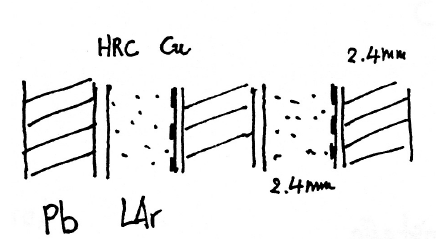 HRC Cu
2.4mm
2.4mm
Pb LAr